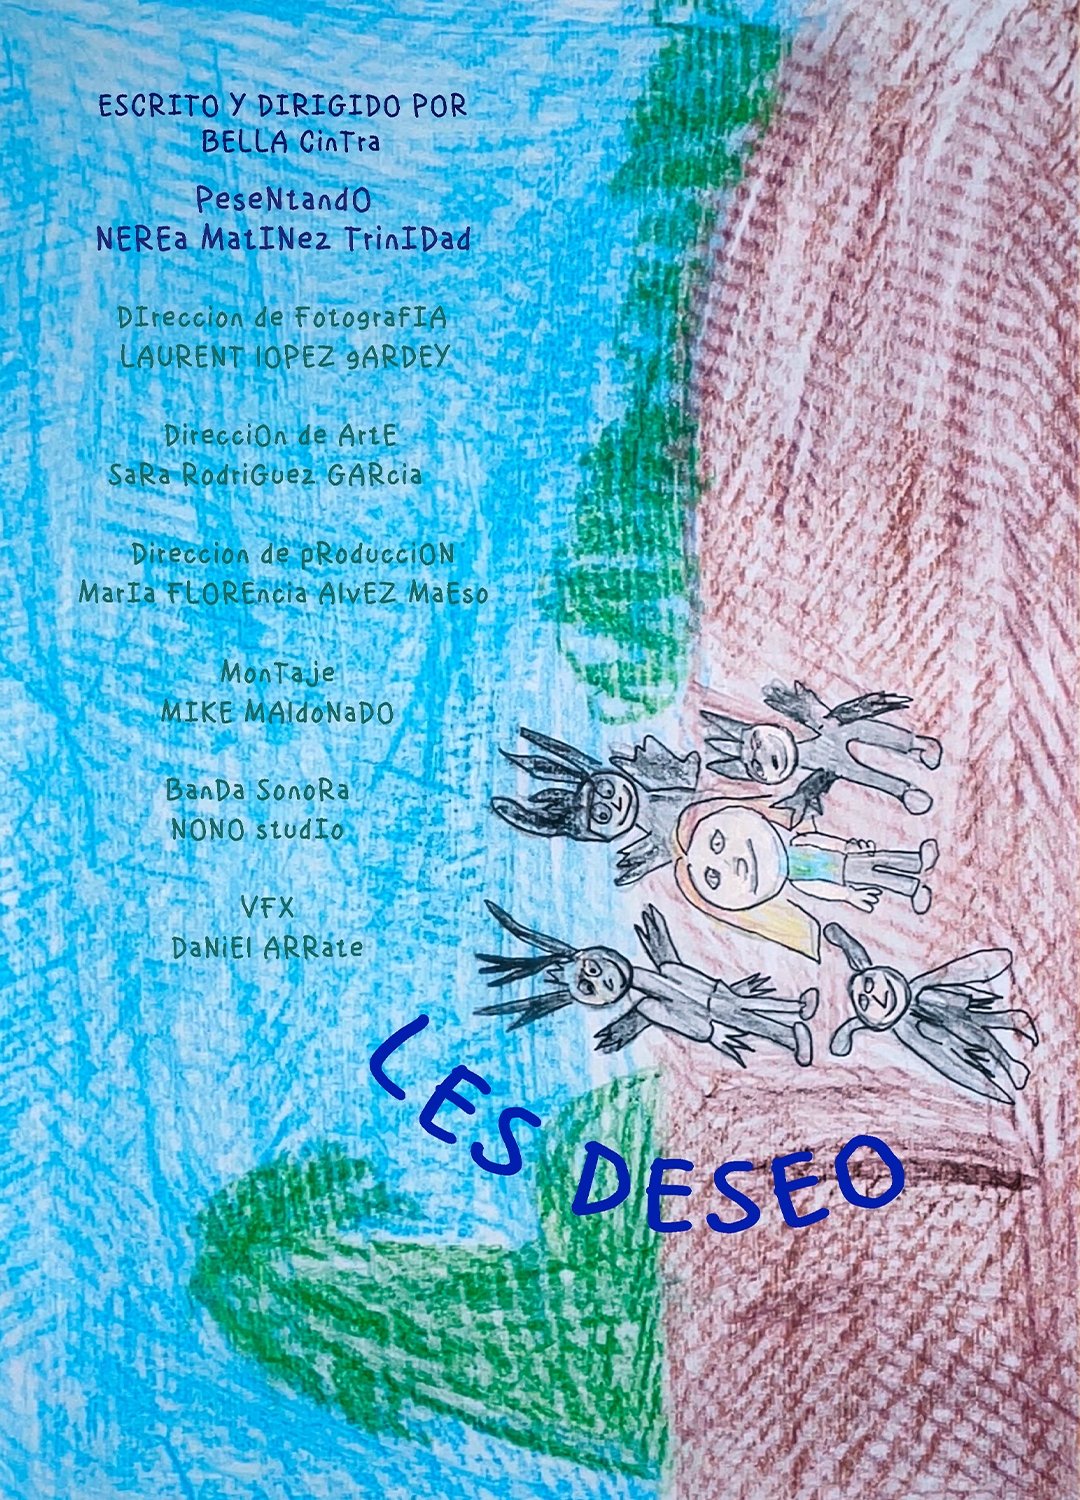 ESCRITO Y DIRIGIDO POR
BELLA CinTra
PeseNtandO
NEREa MatINez TrinIDad
DIreccion de FotografIA
LAURENT lOPEZ gARDEY
DirecciOn de ArtE
SaRa RodriGuez GARcia
Direccion de pRoducciON
MarIa FLOREncia AlvEZ MaEso
MonTaje
MIKE MAldoNaDO
BanDa SonoRa
NONO studIo
VFX
DaNiEl ARRate
LES DESEO